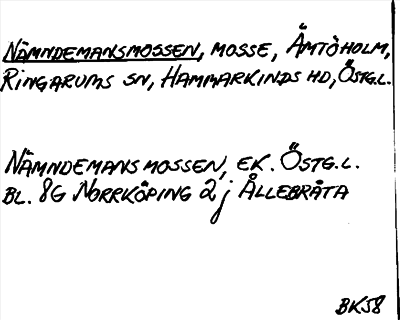 NÄMNDEMANSMOSSEN, MOSSE, ÄMTÖHOLM,
RINGARUMS SN, HAMMARKINDS HD, ÖSTG.L.
NÄMNDEMANSMOSSEN, EK. ÖSTG.L.
BL. 8G NORRKÖPING 2j ÅLLEBRÅTA
BK58